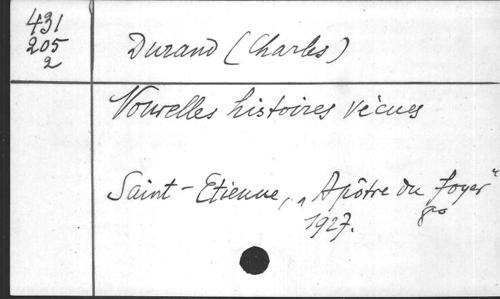 431
205
2
Durand (Charles)
Nouvelles histoires vécues
Saint-Etienne, „Apôtre du foyer“
1927.